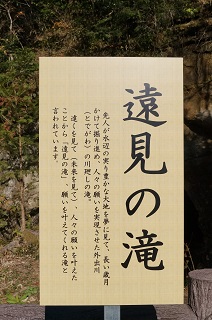 遠見の滝
先人が水辺の実り豊かな大地を夢に見て、長い歳月
かけて掘り進め、人々の願いを実現させた外出川
(とでがわ)の川廻しの滝。
遠くを見て(未来を見て)、人々の願いを叶えた
ことから「遠見の滝」、願いを叶えてくれる滝と
言われています。